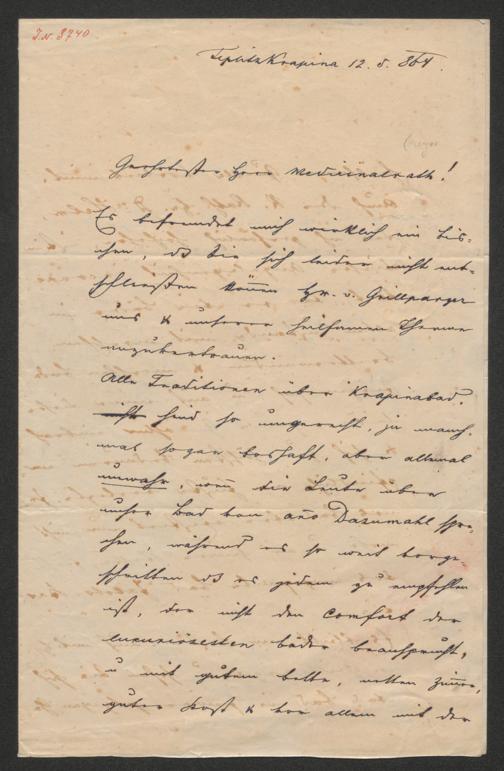 I.N. 3740
Teplitz Krapina 12. 5. 864.
Geehrtester Herr Medicinalrath!
Es befremdet mich wirklich ein bis-
chen, dß Sie sich leider nicht ent-
schließen können Hr. v. Grillparzer
uns & unserer heilsamen Therme
anzuvertrauen.
Alle Traditionen über Krapinabad
sind so ungerecht, ja manch-
mal sogar boshaft, aber allemal
unwahr, wen̅ die Leute über
unser Bad von año Dazumahl spre-
chen, während es so weit vorge-
schritten dß es jedem zu empfehlen
ist, der nicht den Comfort der
luxuriösesten Bäder beansprucht,
u mit gutem Bette, netten Zim̅er,
guter Kost & vor allem mit der